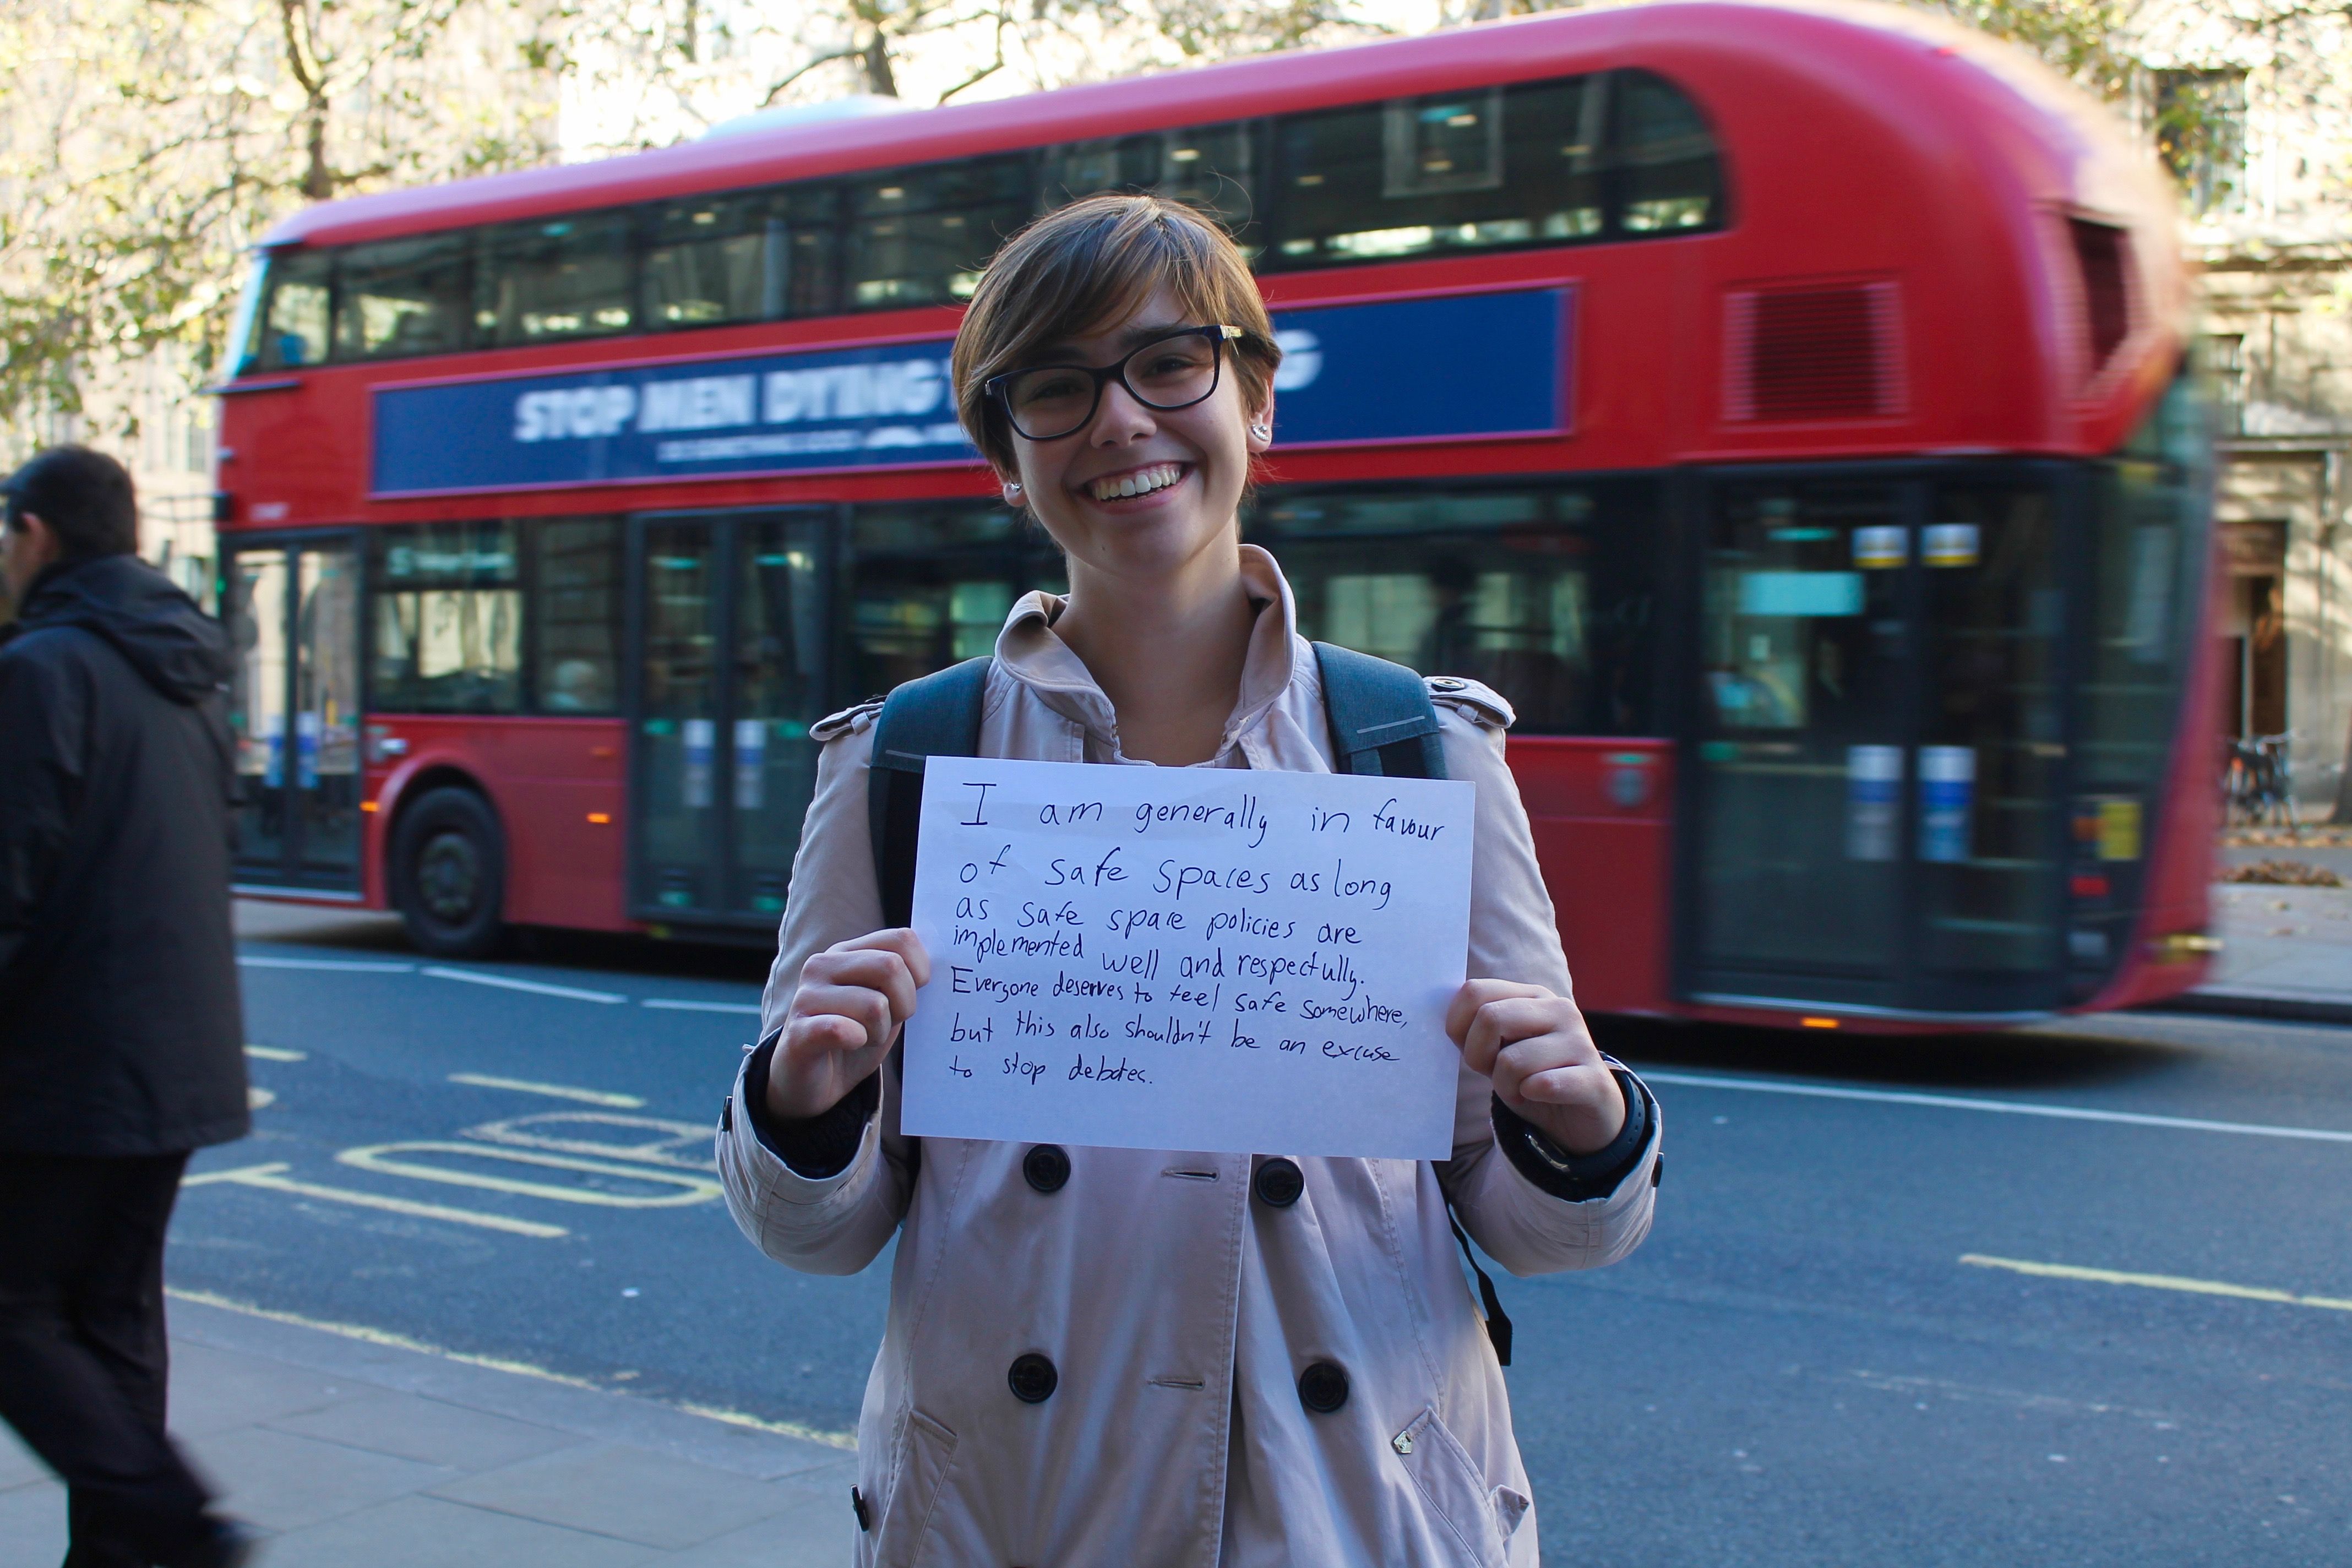 STOP MEN DYING
I am generally in favour
of safe spaces as long
as safe space policies are
implemented well and respectfully.
Everyone deserves to feel safe somewhere,
but this also shouldn't be an excuse
to stop debates.